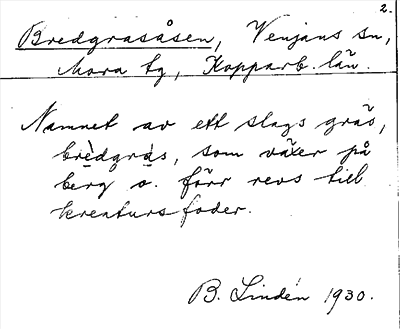 2.
Bredgrasåsen, Venjans sn,
Mora tg, Kopparb. län.
Namnet av ett slags gräs,
brèdgràs, som växer på
berg o. förr revs till
kreatursfoder.
B. Lindén 1930.